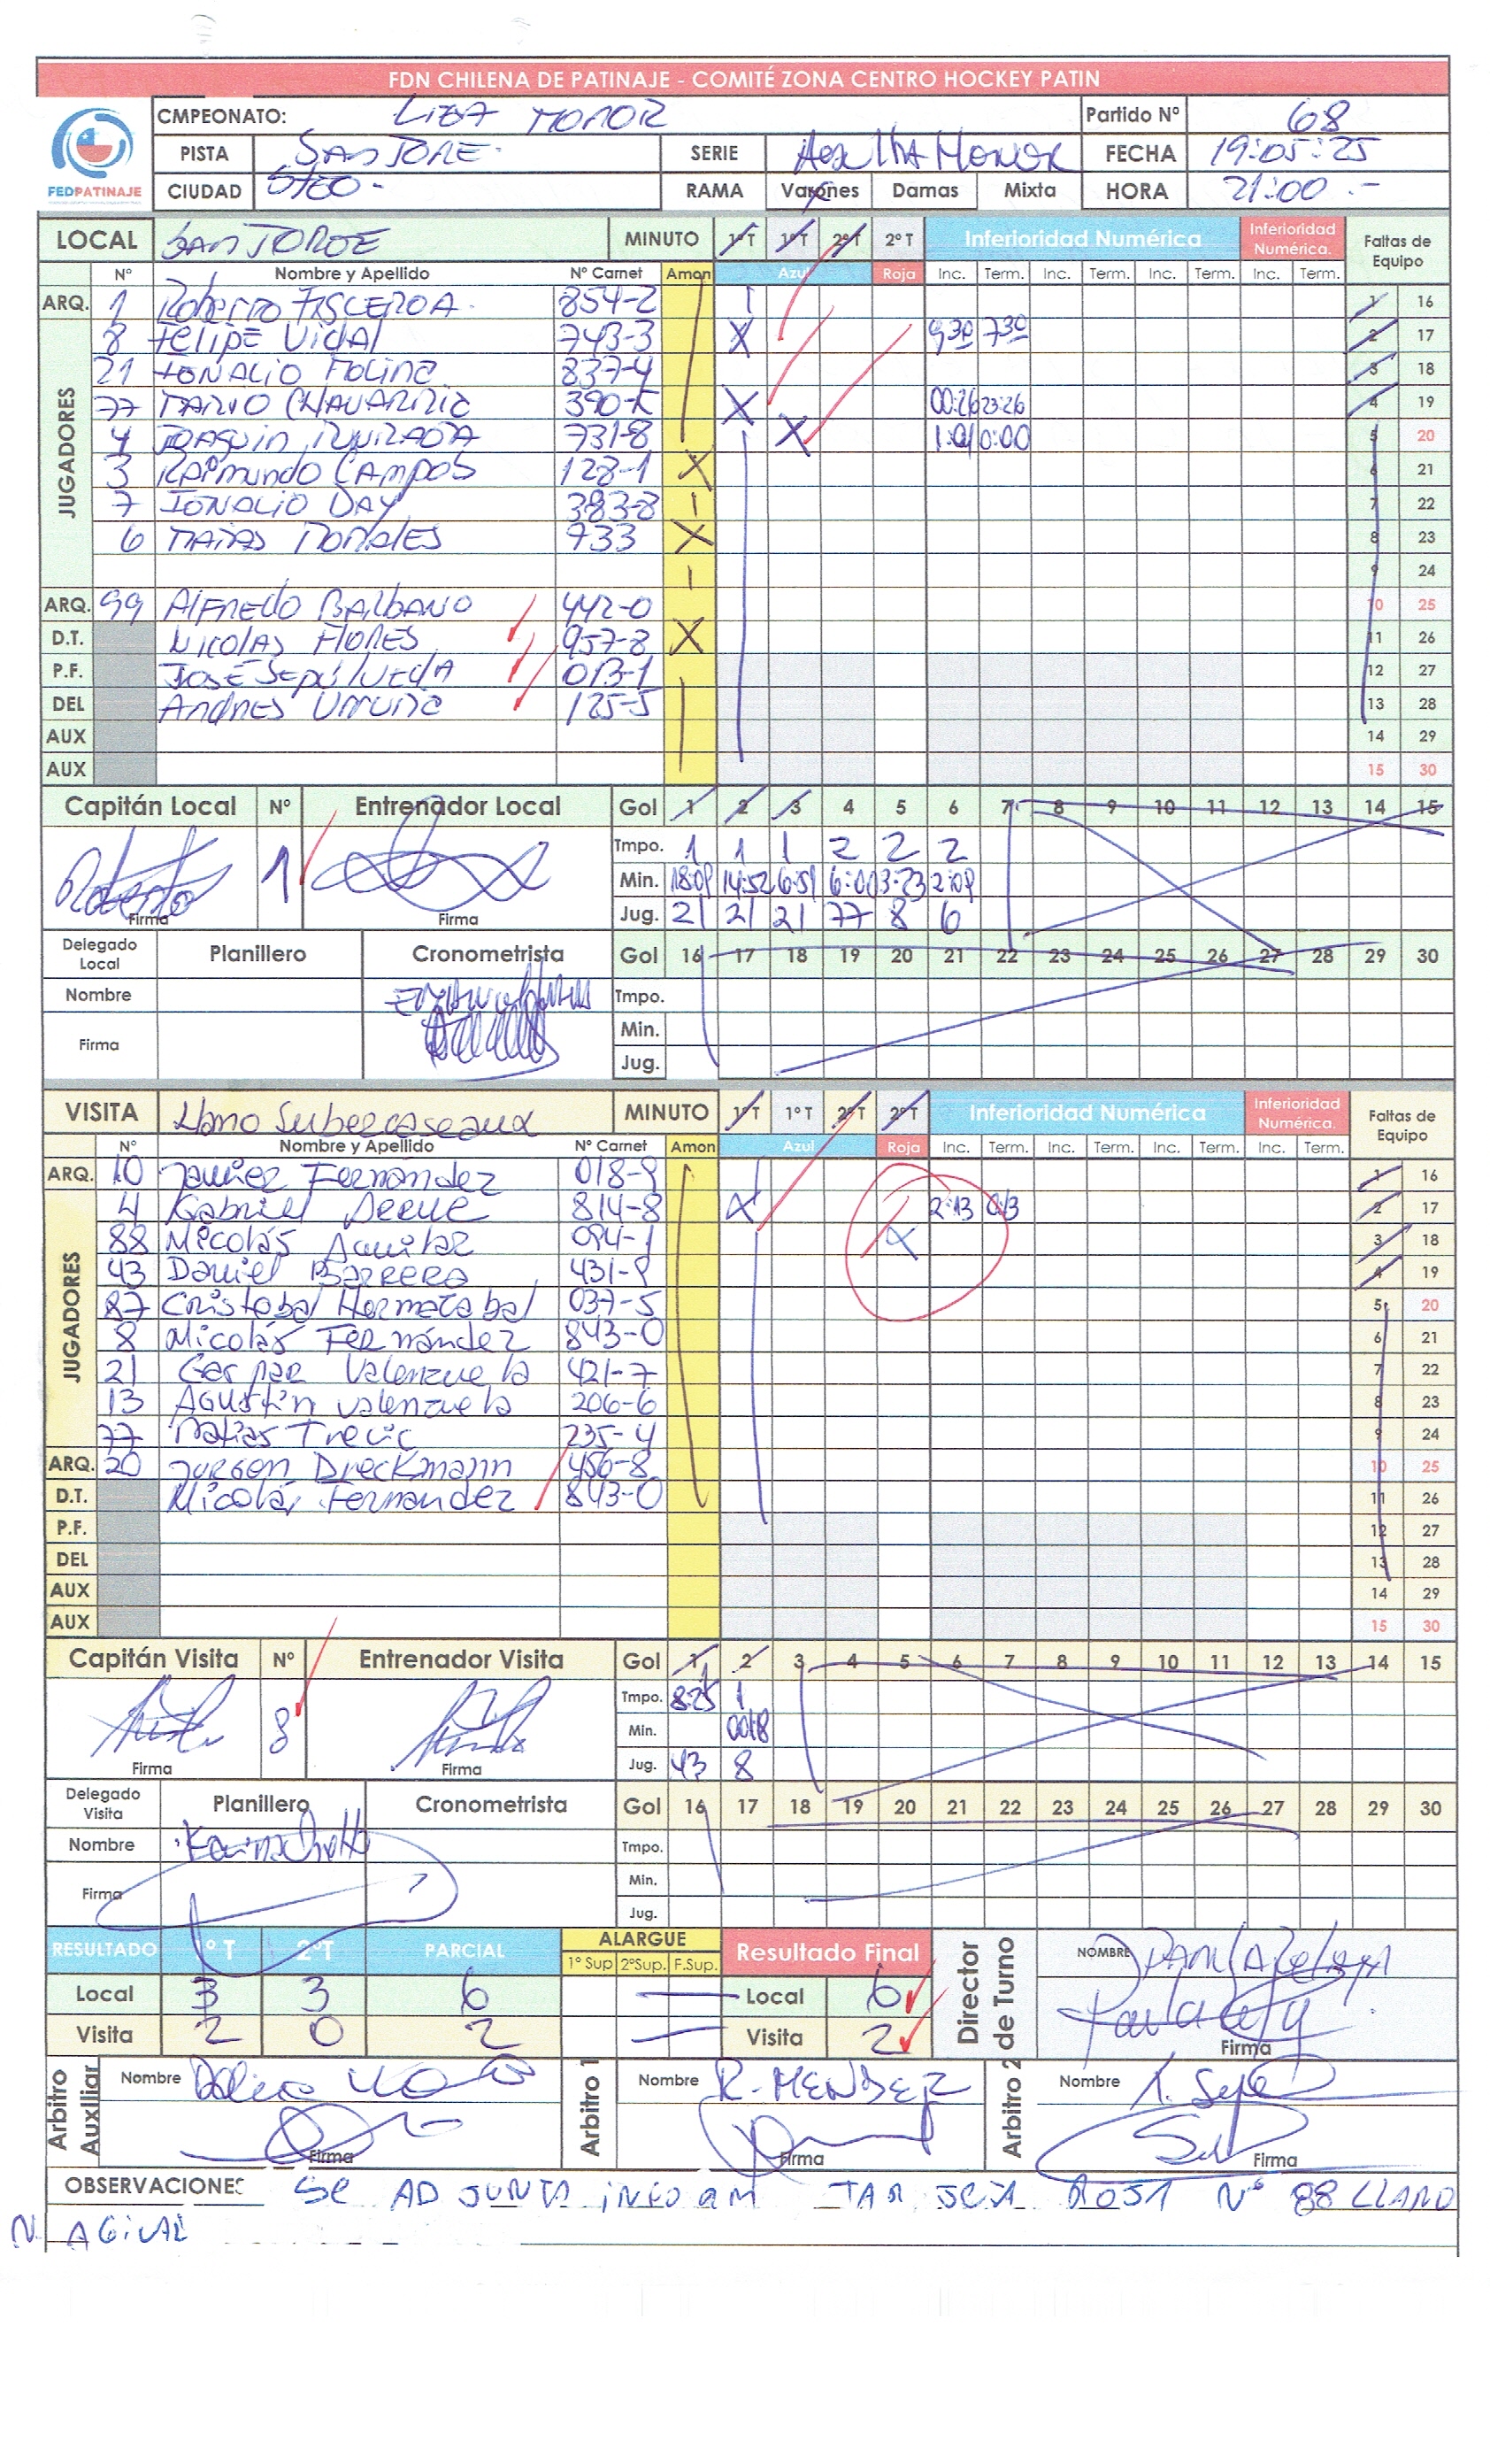 FDN CHILENA DE PATINAJE - COMITÉ ZONA CENTRO HOCKEY PATIN
FEDPATINAJE
CMPEONATO: Partido Nº 68
PISTA SERIE FECHA 19:05:25
CIUDAD RAMA Varones Damas Mixta HORA 21:00
LOCAL SAN JORGE MINUTO 1º T 1º T 2º T 2º T Inferioridad Numérica Inferioridad Numérica. Faltas de Equipo
Nº Nombre y Apellido Nº Carnet Amon Azul Roja Inc. Term. Inc. Term. Inc. Term. Inc. Term.
ARQ. 1 854-2 1 16
JUGADORES
8 Felipe Vidal 743-3 X 9:30 7:30 2 17
21 837-4 3 18
77 390-K X 00:26 23:26 4 19
4 731-8 X 0:00 5 20
3 Raimundo Campos 128-1 X 6 21
7 383-8 7 22
6 733 X 8 23
9 24
ARQ. 99 442-0 10 25
D.T. Nicolas Flores 957-8 X 11 26
P.F. José Sepúlveda 013-1 12 27
DEL 125-5 13 28
AUX 14 29
AUX 15 30
Capitán Local Nº Entrenador Local Gol 1 2 3 4 5 6 7 8 9 10 11 12 13 14 15
Tmpo. 1 1 1 2 2 2
1 Min. 18:09 14:52 6:59
Firma Firma Jug. 21 21 21 77 8 6
Delegado Local Planillero Cronometrista Gol 16 17 18 19 20 21 22 23 24 25 26 27 28 29 30
Nombre Tmpo.
Firma Min.
Jug.
VISITA Llano Subercaseaux MINUTO 1º T 1º T 2º T 2º T Inferioridad Numérica Inferioridad Numérica. Faltas de Equipo
Nº Nombre y Apellido Nº Carnet Amon Azul Roja Inc. Term. Inc. Term. Inc. Term. Inc. Term.
ARQ. 10 Fernández 018-9 1 16
JUGADORES
4 Gabriel 814-8 X 2:13 0:13 2 17
88 Nicolás Aguilar 094-1 X 3 18
43 Daniel Barrera 431-9 4 19
87 Cristobal 037-5 5 20
8 Nicolás Fernández 843-0 6 21
21 Gaspar Valenzuela 421-7 7 22
13 Agustín Valenzuela 206-6 8 23
77 Matias 235-4 9 24
ARQ. 20 Dreckmann 456-8 10 25
D.T. Nicolás Fernandez 843-0 11 26
P.F. 12 27
DEL 13 28
AUX 14 29
AUX 15 30
Capitán Visita Nº Entrenador Visita Gol 1 2 3 4 5 6 7 8 9 10 11 12 13 14 15
Tmpo. 8:25 1
8 Min. 00:18
Firma Firma Jug. 43 8
Delegado Visita Planillero Cronometrista Gol 16 17 18 19 20 21 22 23 24 25 26 27 28 29 30
Nombre Tmpo.
Firma Min.
Jug.
RESULTADO 1º T 2ºT PARCIAL ALARGUE 1º Sup 2ºSup. F.Sup. Resultado Final Director de Turno NOMBRE
Local 3 3 6 Local 6
Visita 2 0 2 Visita 2 Firma
Arbitro Auxiliar Nombre Arbitro 1 Nombre R. MENDEZ Arbitro 2 Nombre
Firma Firma Firma
OBSERVACIONES SE ADJUNTA TARJETA ROJA Nº 88 LLANO
N.